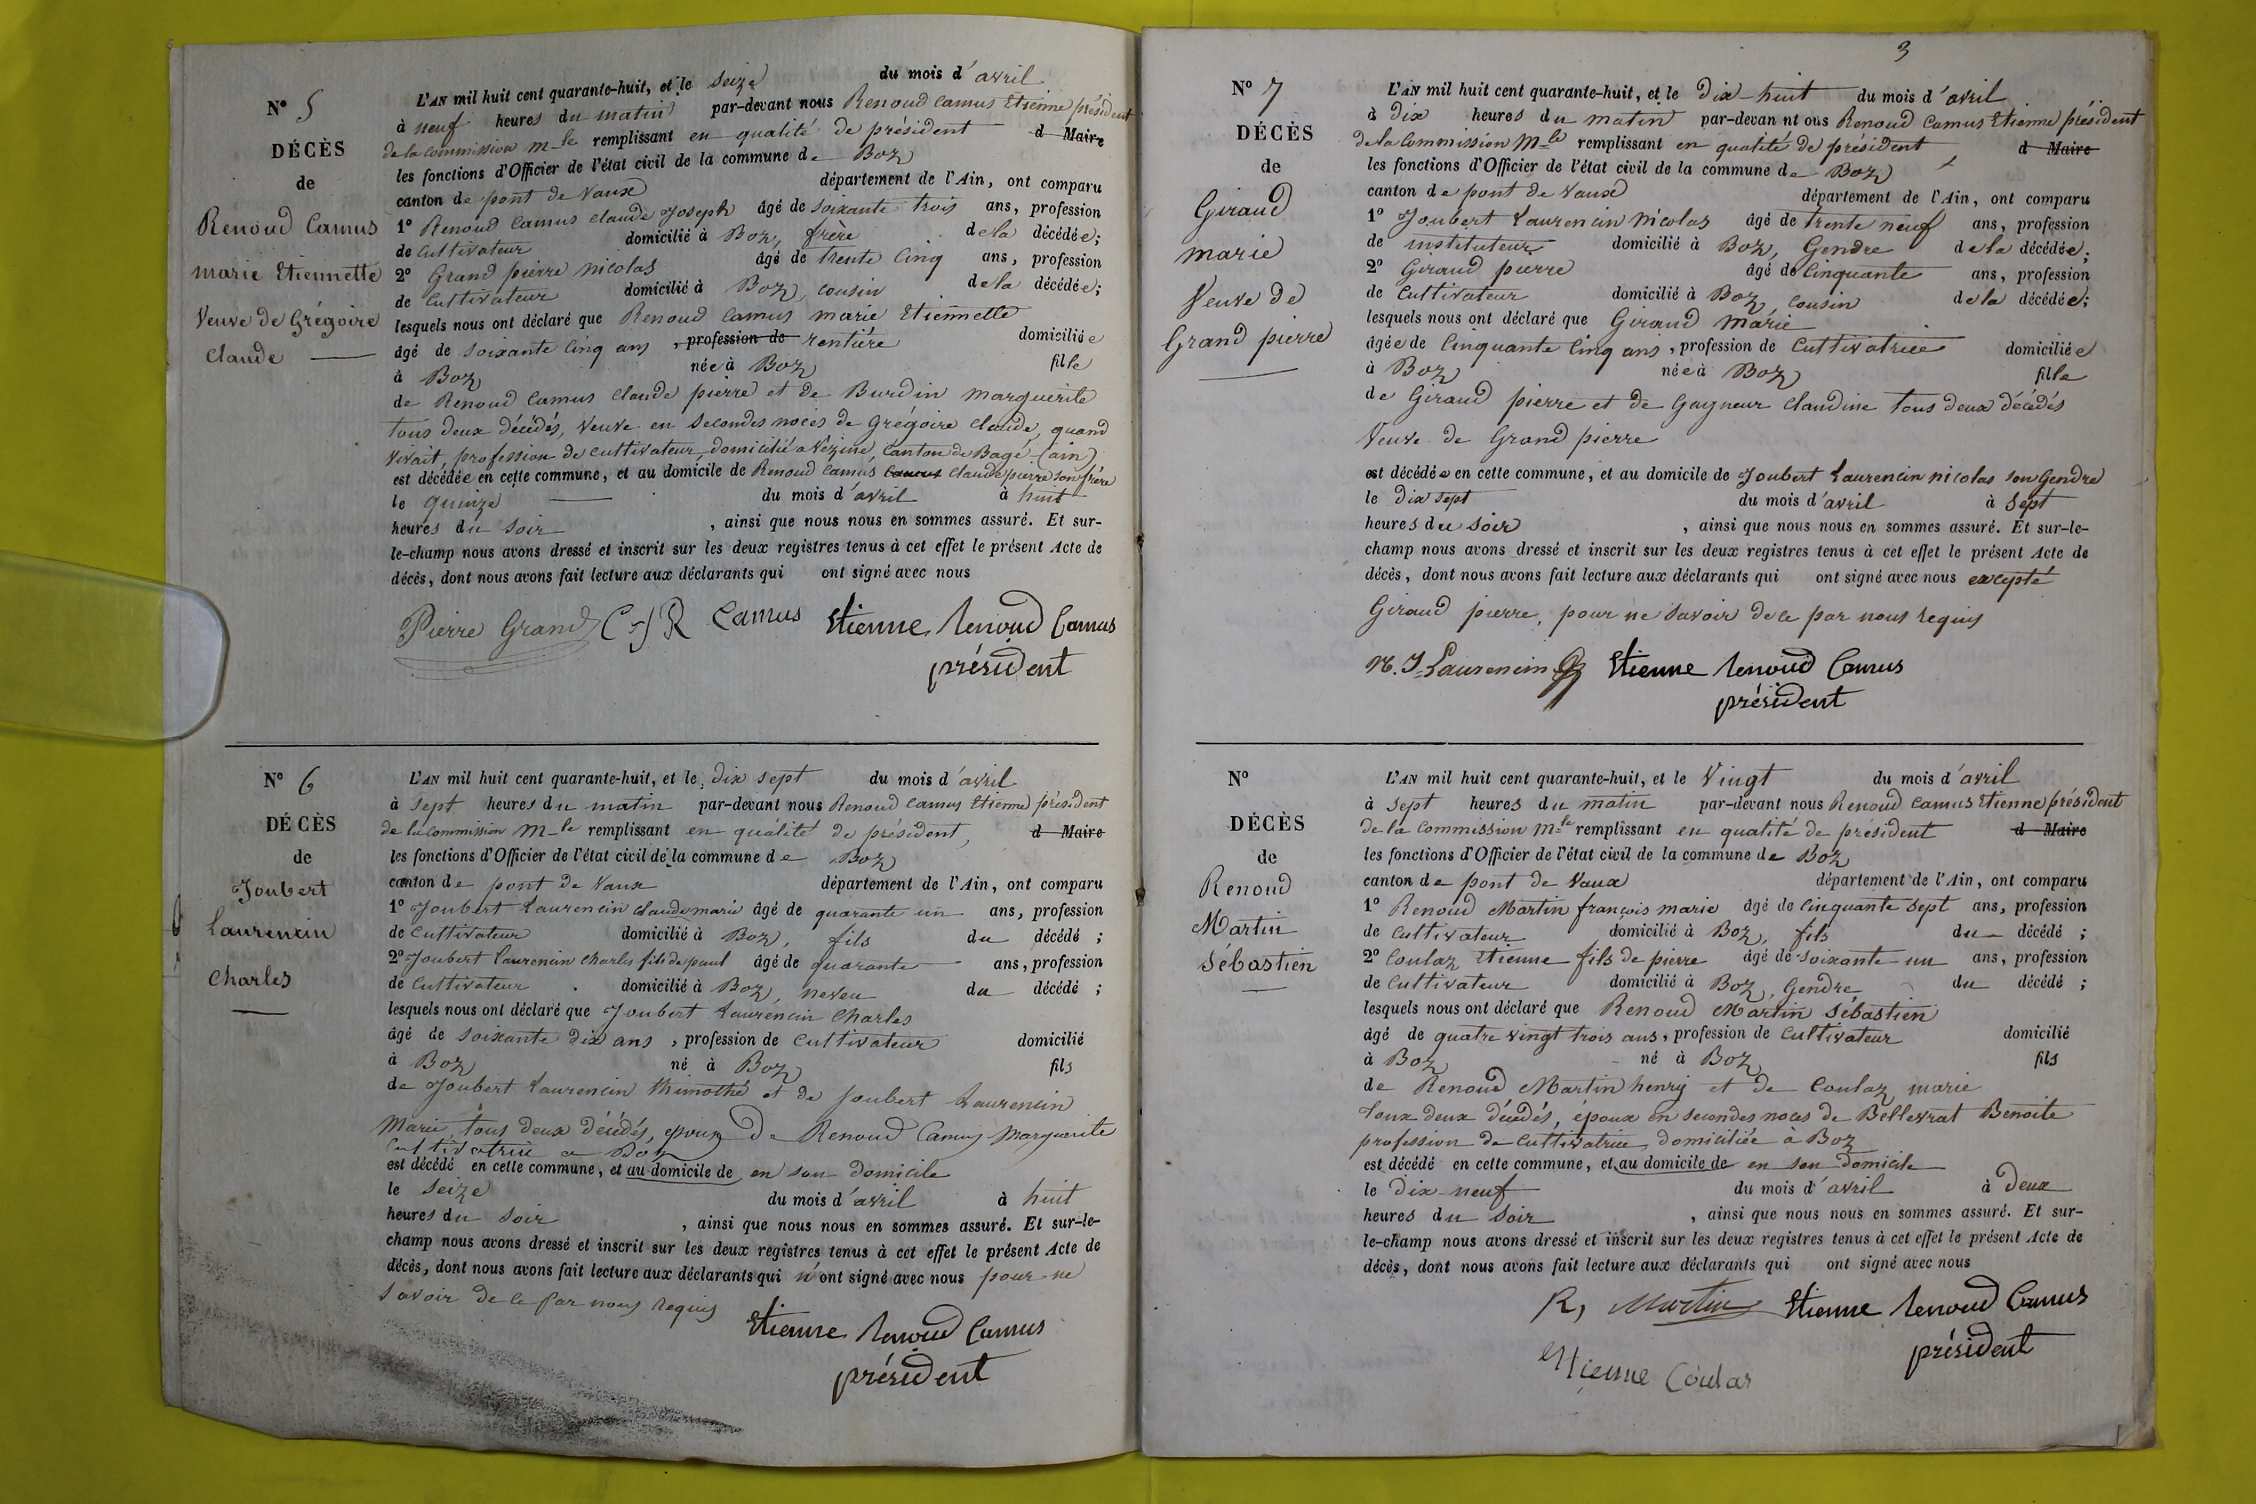 N° 5
DÉCÈS
de
Renoud Camus
marie Etiennette
Veuve de Grégoire
Claude
L'AN mil huit cent quarante-huit, et le seize du mois d'avril
à neuf heures du matin par-devant nous Renoud Camus Etienne président
de la commission m-le remplissant en qualité de président d Maire
les fonctions d'Officier de l'état civil de la commune de Boz
canton de pont de Vaux département de l'Ain, ont comparu
1° Renoud Camus claude Joseph âgé de soixante trois ans, profession
de cultivateur domicilié à Boz, frère de la décédée;
2° Grand pierre nicolas âgé de trente Cinq ans, profession
de Cultivateur domicilié à Boz, cousin de la décédée;
lesquels nous ont déclaré que Renoud Camus marie Etiennette
âgé de soixante Cinq ans, profession de rentière domiciliée
à Boz née à Boz fille
de Renoud Camus Claude pierre et de Burdin marguerite
tous deux décédés, Veuve en secondes noces de Grégoire Claude, quand
vivait, profession de cultivateur, domicilié à Vézine, Canton de Bagé (ain)
est décédée en cette commune, et au domicile de Renoud Camus Camus Claude pierre son frère
le quinze du mois d'avril à huit
heures du soir, ainsi que nous nous en sommes assuré. Et sur-
le-champ nous avons dressé et inscrit sur les deux registres tenus à cet effet le présent Acte de
décès, dont nous avons fait lecture aux déclarants qui ont signé avec nous
Pierre Grand C-J R Camus Etienne Renoud Camus
président
N° 6
DÉCÈS
de
Joubert
Laurencin
Charles
L'AN mil huit cent quarante-huit, et le dix sept du mois d'avril
à sept heures du matin par-devant nous Renoud Camus Etienne président
de la commission m-le remplissant en qualité de président, d Maire
les fonctions d'Officier de l'état civil de la commune de Boz
canton de pont de Vaux département de l'Ain, ont comparu
1° Joubert Laurencin Claude marie âgé de quarante un ans, profession
de Cultivateur domicilié à Boz, fils du décédé;
2° Joubert Laurencin Charles fils de paul âgé de quarante ans, profession
de Cultivateur domicilié à Boz, neveu du décédé;
lesquels nous ont déclaré que Joubert Laurencin Charles
âgé de soixante dix ans, profession de Cultivateur domicilié
à Boz né à Boz fils
de Joubert Laurencin thimothé et de Joubert Laurencin
Marie, tous deux décédés, époux De Renoud Camus Marguerite
Cultivatrice a Boz
est décédé en cette commune, et au domicile de en son domicile
le seize du mois d'avril à huit
heures du soir, ainsi que nous nous en sommes assuré. Et sur-le-
champ nous avons dressé et inscrit sur les deux registres tenus à cet effet le présent Acte de
décès, dont nous avons fait lecture aux déclarants qui n'ont signé avec nous pour ne
savoir de ce par nous requis
Etienne Renoud Camus
président
3
N° 7
DÉCÈS
de
Giraud
marie
Veuve de
Grand pierre
L'AN mil huit cent quarante-huit, et le dix-huit du mois d'avril
à dix heures du matin par-devan nt ous Renoud Camus Etienne président
de la Commission M-le remplissant en qualité de président d Maire
les fonctions d'Officier de l'état civil de la commune de Boz
canton de pont de Vaux département de l'Ain, ont comparu
1° Joubert Laurencin Nicolas âgé de trente neuf ans, profession
de instituteur domicilié à Boz, Gendre de la décédée;
2° Giraud pierre âgé de Cinquante ans, profession
de Cultivateur domicilié à Boz, cousin de la décédée;
lesquels nous ont déclaré que Giraud marie
âgée de Cinquante Cinq ans, profession de Cultivatrice domiciliée
à Boz née à Boz fille
de Giraud pierre et de Gagneur Claudine tous deux décédés
Veuve de Grand pierre
est décédée en cette commune, et au domicile de Joubert Laurencin nicolas son Gendre
le dix sept du mois d'avril à sept
heures du soir, ainsi que nous nous en sommes assuré. Et sur-le-
champ nous avons dressé et inscrit sur les deux registres tenus à cet effet le présent Acte de
décès, dont nous avons fait lecture aux déclarants qui ont signé avec nous excepté
Giraud pierre, pour ne savoir de ce par nous requis
N. J. Laurencin Etienne Renoud Camus
président
N°
DÉCÈS
de
Renoud
Martin
Sébastien
L'AN mil huit cent quarante-huit, et le Vingt du mois d'avril
à sept heures du matin par-devant nous Renoud Camus Etienne président
de la Commission m-le remplissant en qualité de président d Maire
les fonctions d'Officier de l'état civil de la commune de Boz
canton de pont de Vaux département de l'Ain, ont comparu
1° Renoud Martin françois marie âgé de Cinquante sept ans, profession
de Cultivateur domicilié à Boz, fils du décédé;
2° Coulaz Etienne fils de pierre âgé de soixante un ans, profession
de Cultivateur domicilié à Boz, Gendre du décédé;
lesquels nous ont déclaré que Renoud Martin Sébastien
âgé de quatre vingt trois ans, profession de Cultivateur domicilié
à Boz né à Boz fils
de Renoud Martin henry et de Coulaz marie
toux deux décédés, époux en secondes noces de Bellevrat Benoite
profession de Cultivatrice, domiciliée à Boz
est décédé en cette commune, et au domicile de en son domicile
le dix-neuf du mois d'avril à Deux
heures du soir, ainsi que nous nous en sommes assuré. Et sur-
le-champ nous avons dressé et inscrit sur les deux registres tenus à cet effet le présent Acte de
décès, dont nous avons fait lecture aux déclarants qui ont signé avec nous
R, Martin Etienne Renoud Camus
président
Etienne Coulas